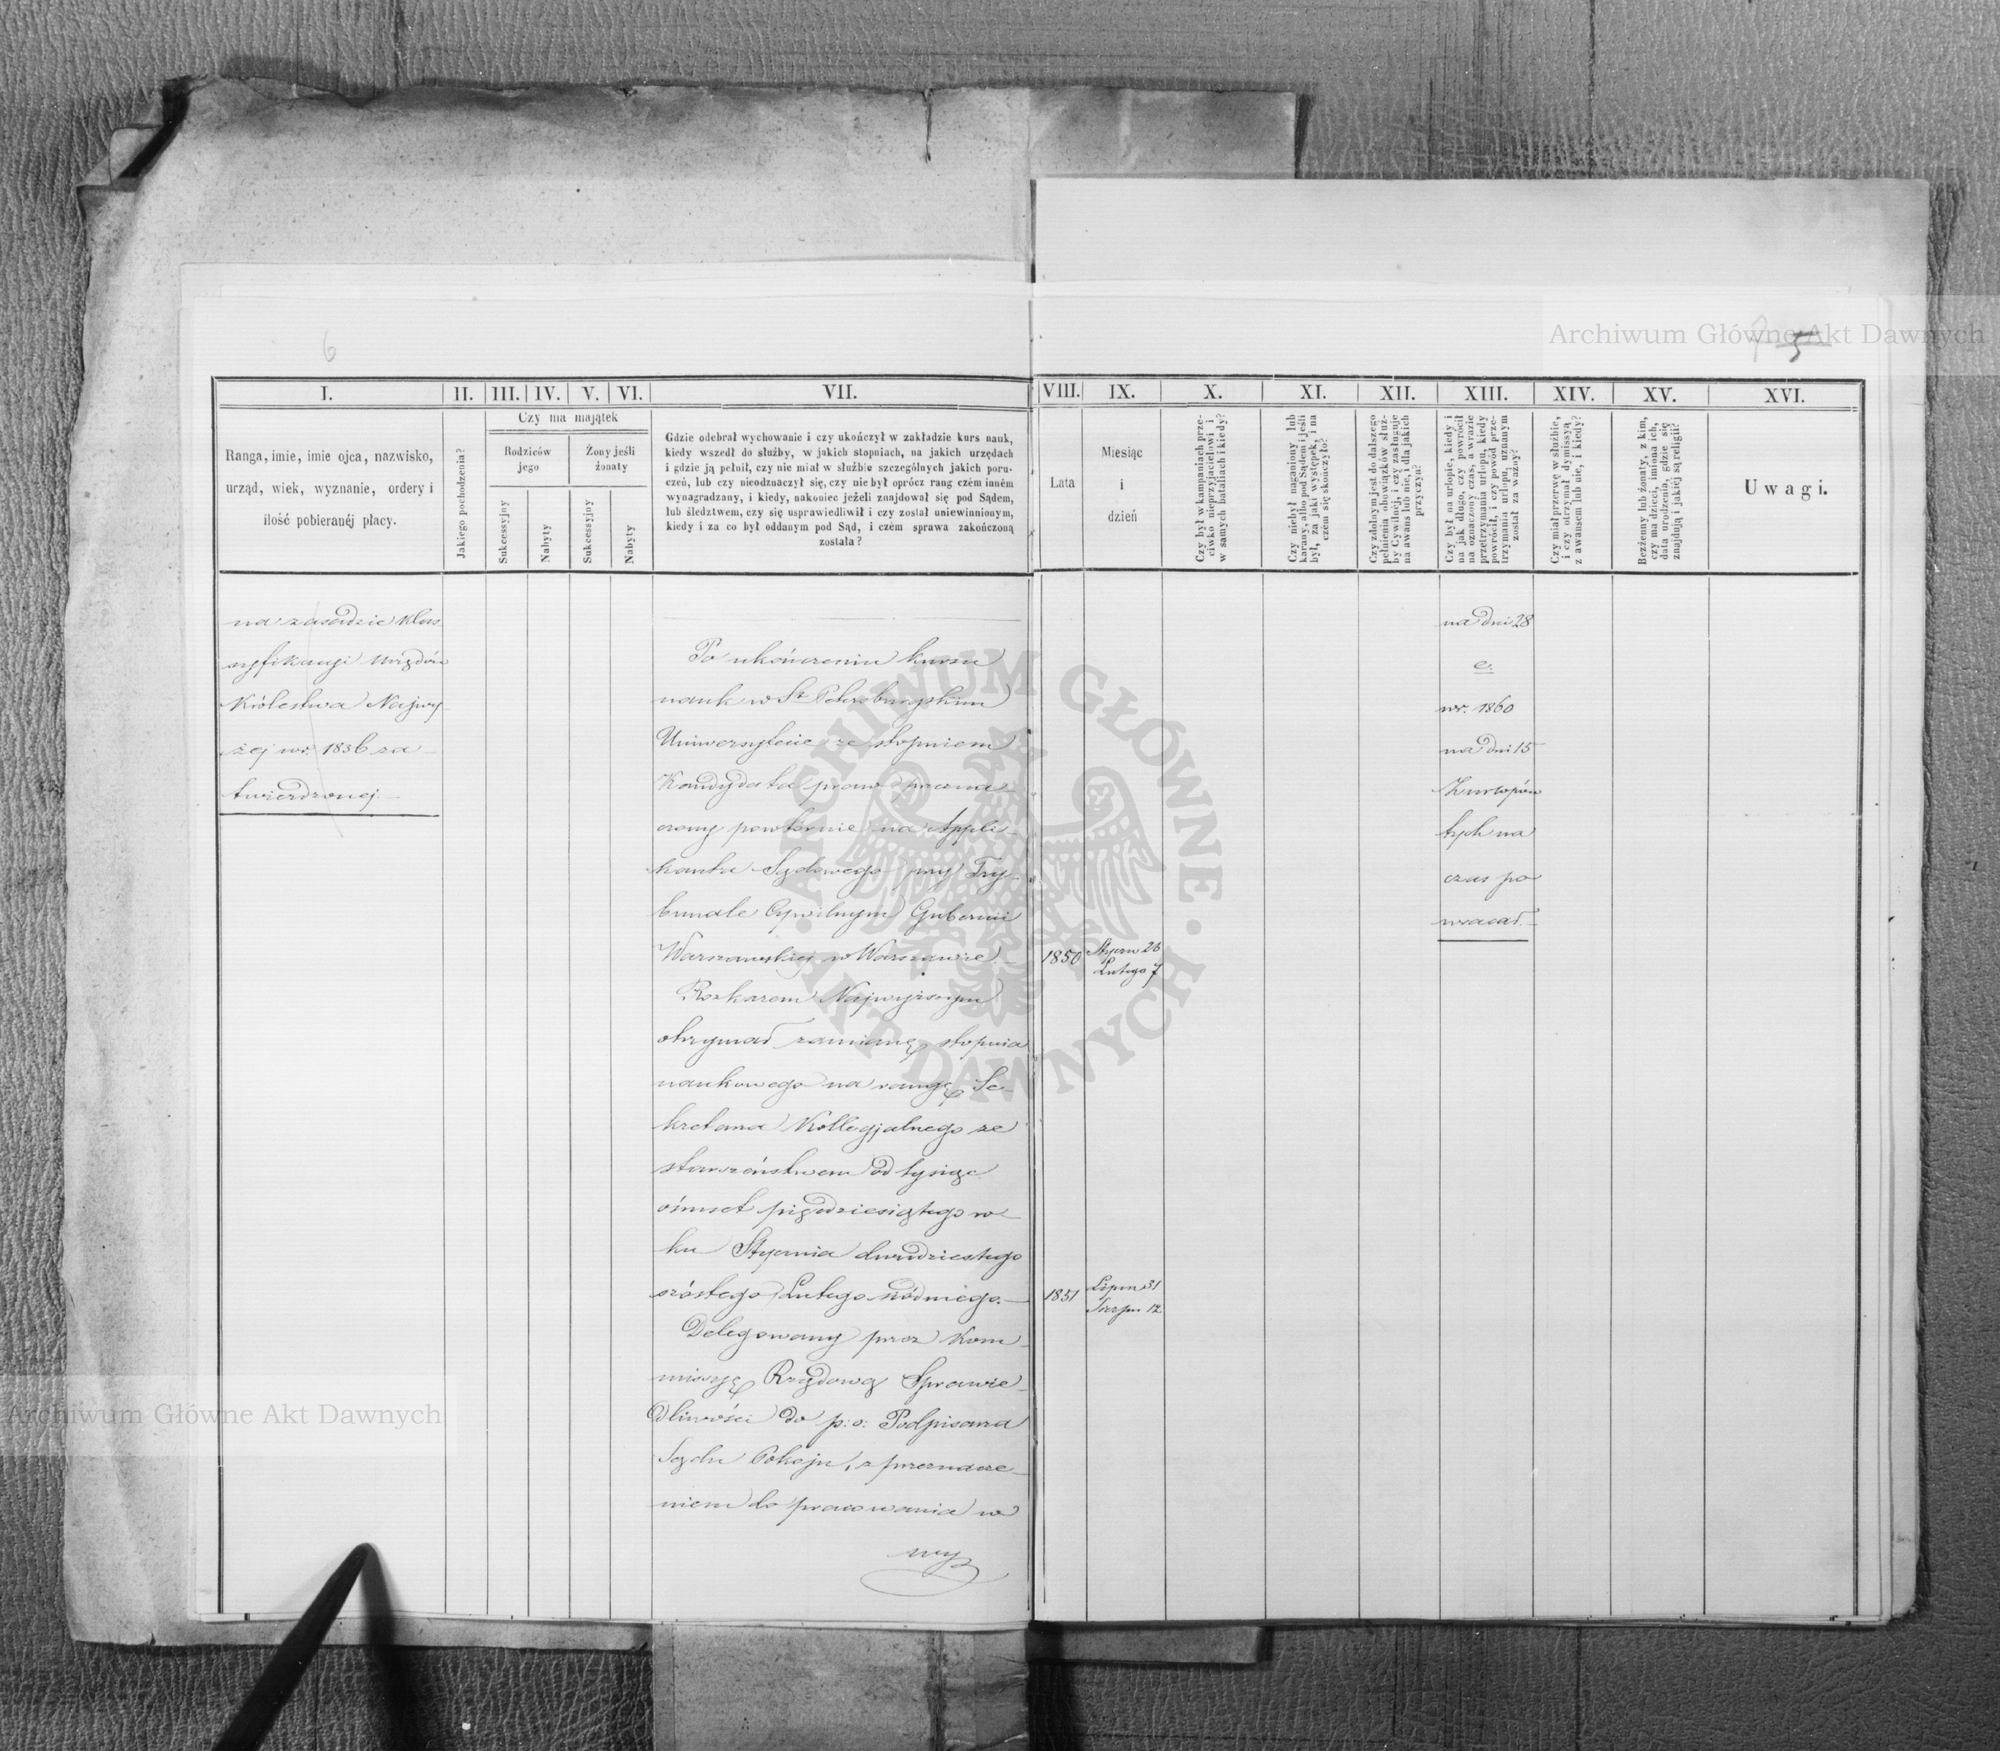 6
5
I.
II.
III.
IV.
V.
VI.
VII.
VIII.
IX.
X.
XI.
XII.
XIII.
XIV.
XV.
XVI.
Ranga, imie, imie ojca, nazwisko,
urząd, wiek, wyznanie, ordery i
ilość pobieranéj płacy.
Jakiego pochodzenia?
Czy ma majątek
Rodziców
jego
Żony jeśli
żonaty
Sukcessyjny
Nabyty
Sukcessyjny
Nabyty
Gdzie odebrał wychowanie i czy ukończył w zakładzie kurs nauk,
kiedy wszedł do służby, w jakich stopniach, na jakich urzędach
i gdzie ją pełnił, czy nie miał w służbie szczególnych jakich poru-
czeń, lub czy nieodznaczył się, czy nie był oprócz rang czém inném
wynagradzany, i kiedy, nakoniec jeżeli znajdował się pod Sądem,
lub śledztwem, czy się usprawiedliwił i czy został uniewinnionym,
kiedy i za co był oddanym pod Sąd, i czém sprawa zakończoną
została?
Lata
Miesiąc
i
dzień
Czy był w kampaniach prze-
ciwko nieprzyjacielowi i
w samych bataliach i kiedy?
Czy niebył naganiony lub
karany, albo pod Sądem i jeśli
był, za jaki występek, i na
czém się skończyło?
Czy zdolnym jest do dalszego
pełnienia obowiązków służ-
by Cywilnéj, i czy zasługuje
na awans lub nie, i dla jakich
przyczyn?
Czy był na urlopie, kiedy i
na jak długo, czy powrócił
na oznaczony czas, a w razie
przetrzymania urlopu, kiedy
powrócił, i czy powód prze-
trzymania urlopu, uznanym
został za ważny?
Czy miał przerwę w służbie,
i czy otrzymał dymissyą
z awansem lub nie, i kiedy?
Bezżenny lub żonaty, z kim,
czy ma dzieci, imiona ich,
data urodzenia, gdzie się
znajdują i jakiéj są religii?
Uwagi.
na zasadzie Klas
syfikacyi Urzędów
Królestwa Najwy
żej w r. 1836 za
twierdzonej.
Po ukończeniu kursu
nauk w St. Petersburgskim
Uniwersytecie ze stopniem
Kandydata praw przezna
czony powtórnie na Appli-
kanta Sądowego przy Try-
bunale Cywilnym Gubernii
Warszawskiej w Warszawie.
1850
Styczn 26
Lutego 7
Rozkazem Najwyższym
otrzymał zamianę stopnia
naukowego na rangę Se-
kretarza Kollegjalnego ze
starszeństwem od tysiąc
ośmset pięćdziesiątego ro-
ku Stycznia dwudziestego
szóstego Lutego siódmego.
1851
Lipca 31
Sierpn 12
Delegowany przez Kom-
missyę Rządową Sprawie-
dliwości do p: o: Podpisarza
Sądu Pokoju, z przeznacze-
niem do pracowania w
wy
na dni 28
e.
w r. 1860
na dni 15
Z urlopów
tych na
czas po
wracał.
Archiwum Główne Akt Dawnych
Archiwum Główne Akt Dawnych
ARCHIWUM GŁÓWNE · AKT DAWNYCH ·